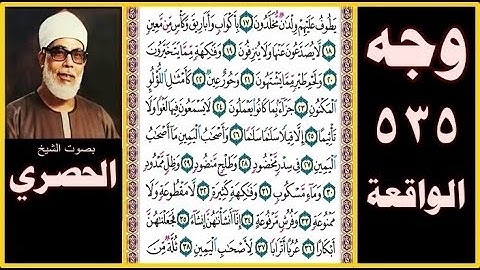 وجه
٥٣٥
الواقعة
يَطُوفُ عَلَيْهِمْ وِلْدَٰنٌ مُّخَلَّدُونَ ١٧ بِأَكْوَابٍ وَأَبَارِيقَ وَكَأْسٍ مِّن مَّعِينٍ
١٨ لَّا يُصَدَّعُونَ عَنْهَا وَلَا يُنزِفُونَ ١٩ وَفَٰكِهَةٍ مِّمَّا يَتَخَيَّرُونَ
٢٠ وَلَحْمِ طَيْرٍ مِّمَّا يَشْتَهُونَ ٢١ وَحُورٌ عِينٌ ٢٢ كَأَمْثَٰلِ ٱللُّؤْلُؤِ
ٱلْمَكْنُونِ ٢٣ جَزَآءًۢ بِمَا كَانُوا۟ يَعْمَلُونَ ٢٤ لَا يَسْمَعُونَ فِيهَا لَغْوًا وَلَا
تَأْثِيمًا ٢٥ إِلَّا قِيلًا سَلَٰمًا سَلَٰمًا ٢٦ وَأَصْحَٰبُ ٱلْيَمِينِ مَآ أَصْحَٰبُ
ٱلْيَمِينِ ٢٧ فِى سِدْرٍ مَّخْضُودٍ ٢٨ وَطَلْحٍ مَّنضُودٍ ٢٩ وَظِلٍّ مَّمْدُودٍ
٣٠ وَمَآءٍ مَّسْكُوبٍ ٣١ وَفَٰكِهَةٍ كَثِيرَةٍ ٣٢ لَّا مَقْطُوعَةٍ وَلَا
مَمْنُوعَةٍ ٣٣ وَفُرُشٍ مَّرْفُوعَةٍ ٣٤ إِنَّآ أَنشَأْنَٰهُنَّ إِنشَآءً ٣٥ فَجَعَلْنَٰهُنَّ
أَبْكَارًا ٣٦ عُرُبًا أَتْرَابًا ٣٧ لِّأَصْحَٰبِ ٱلْيَمِينِ ٣٨ ثُلَّةٌ مِّنَ
بصوت الشيخ
الحصري